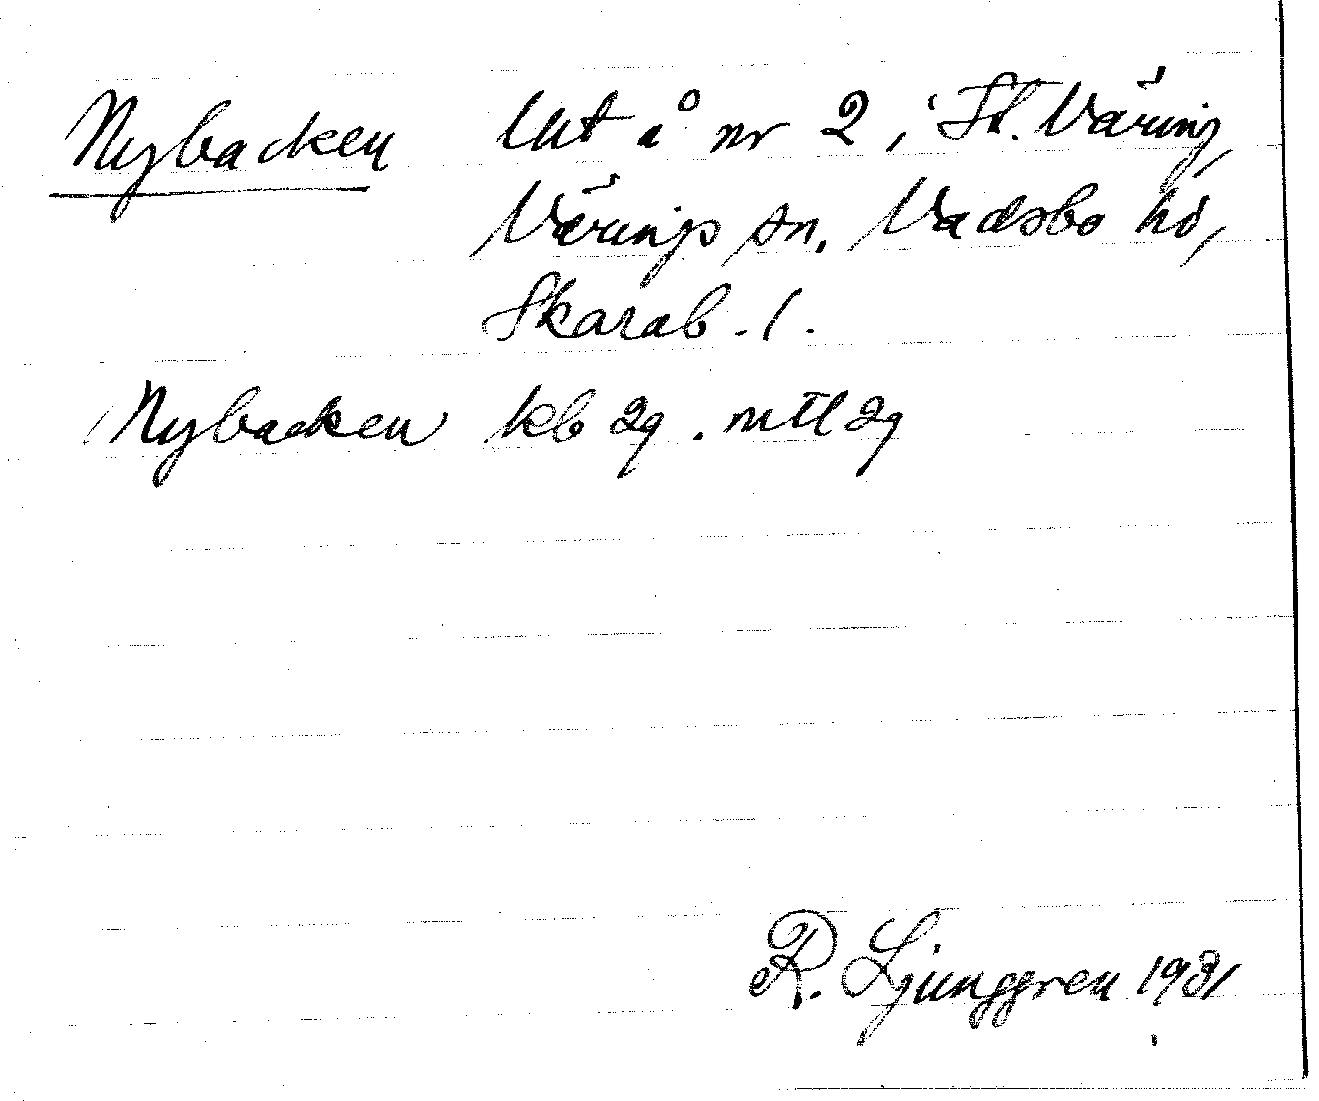 Nybacken Utt å nr 2, St. Väring,
Värings sn. Vadsbo hd,
Skarab. l.
Nybacken kb 29. mtl 29
R. Ljunggren 1931